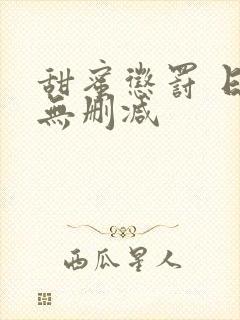 甜蜜懲罰
無刪減
西瓜星人